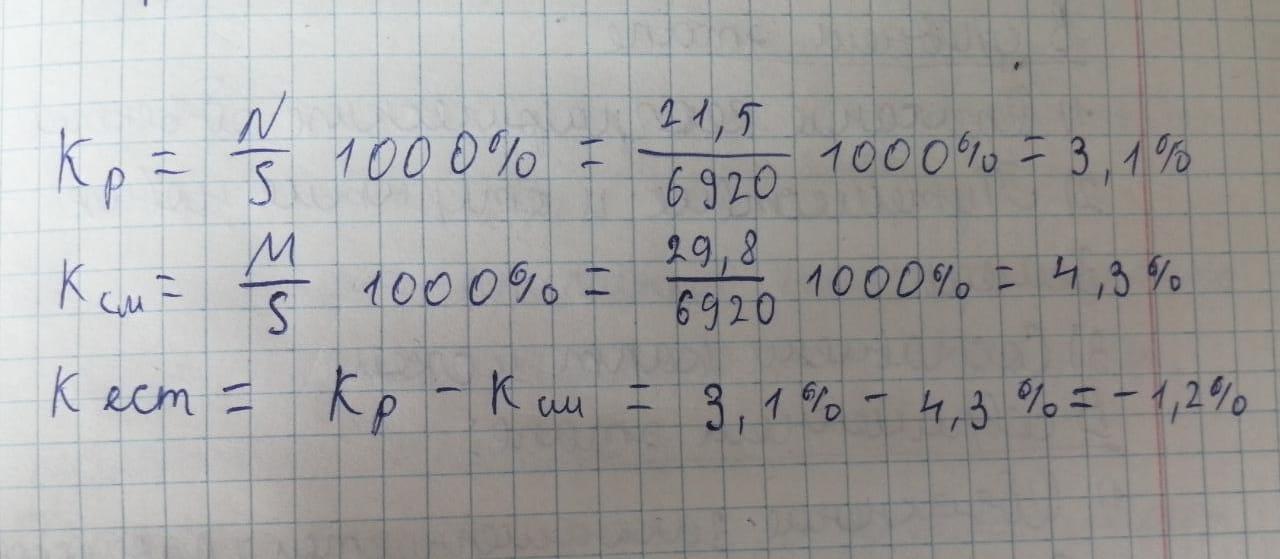 Kр = N/S 1000% = 21,5/6920 1000% = 3,1%
Kсм = M/S 1000% = 29,8/6920 1000% = 4,3%
Kест = Kр - Kсм = 3,1% - 4,3% = -1,2%